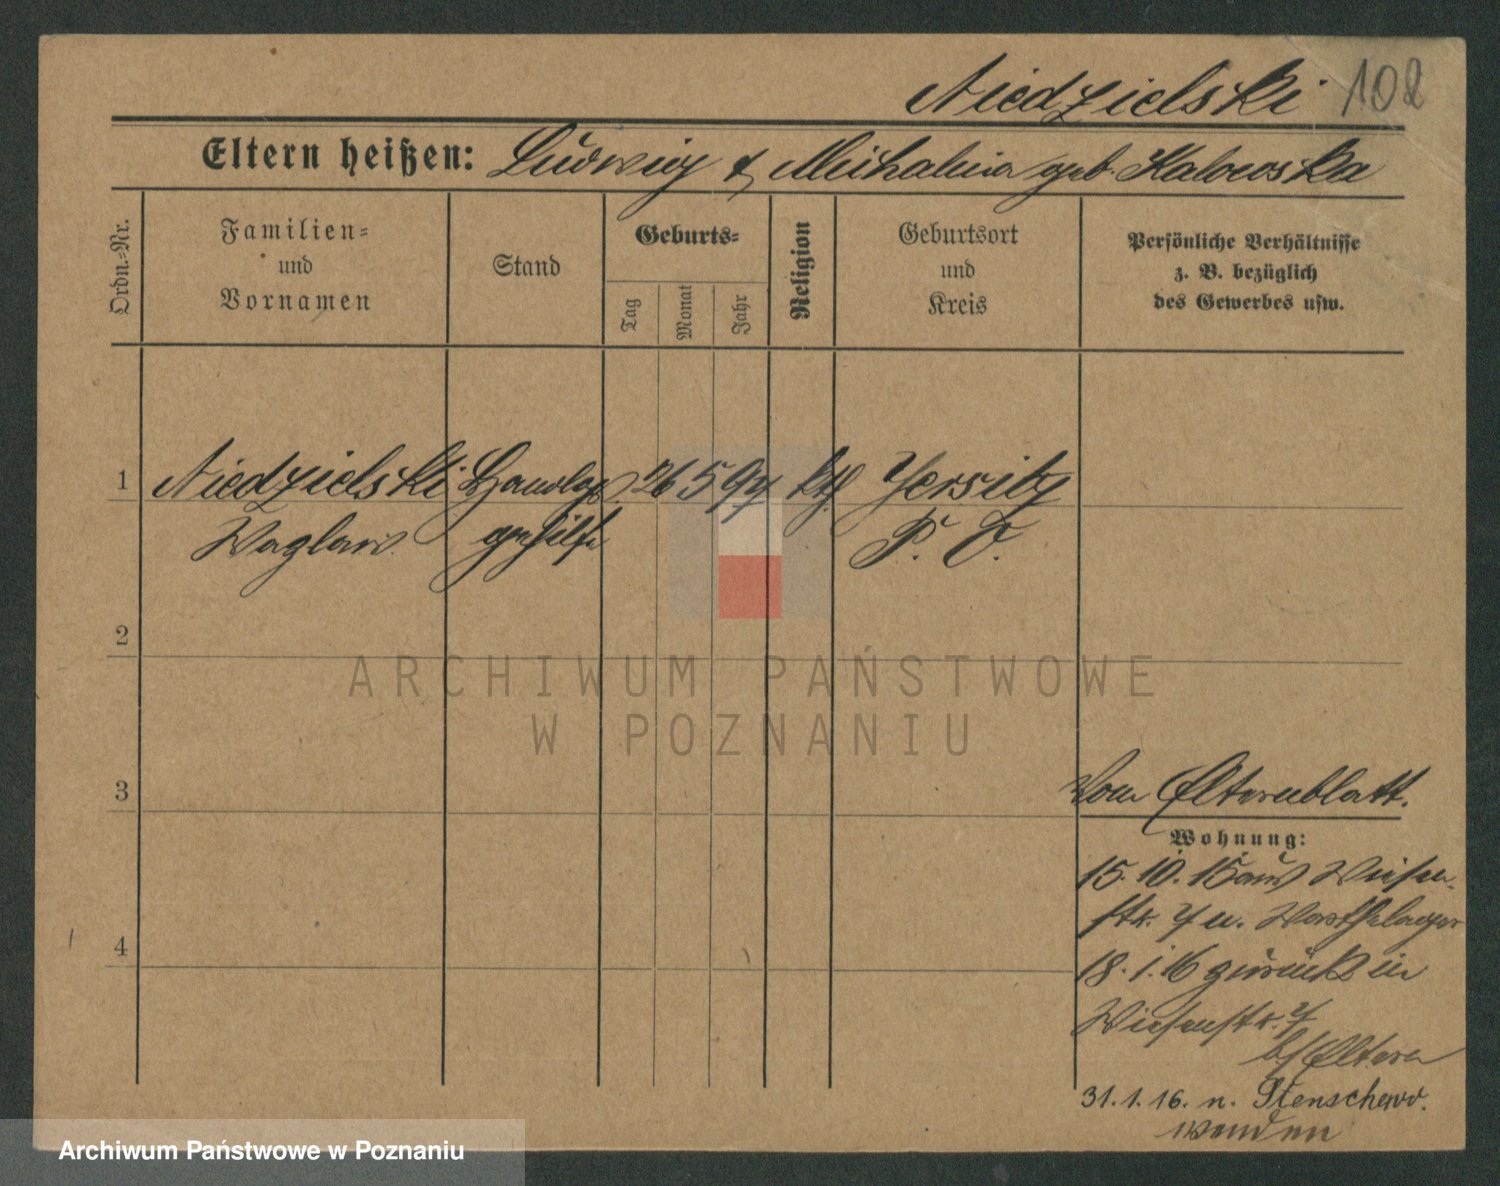 Niedzielski 102
Eltern heißen: Ludwig & Michalina geb. Kalowska
Ordn.-Nr.
Familien-
und
Vornamen
Stand
Geburts-
Tag
Monat
Jahr
Religion
Geburtsort
und
Kreis
Persönliche Verhältnisse
z. B. bezüglich
des Gewerbes usw.
1 Niedzielski Handlgs. 26 5 97 kth Jersitz
Waglaw gehilfe P. O.
2
3
4
Vom Elternblatt.
Wohnung:
15. 10. 15 aus Wiesen-
str. 7 n.
18. 1. 16 zurück in
Wiesenstr. 7
b/ Eltern
31. 1. 16. n. Stenschewo.
wenden
ARCHIWUM PAŃSTWOWE
W POZNANIU
Archiwum Państwowe w Poznaniu